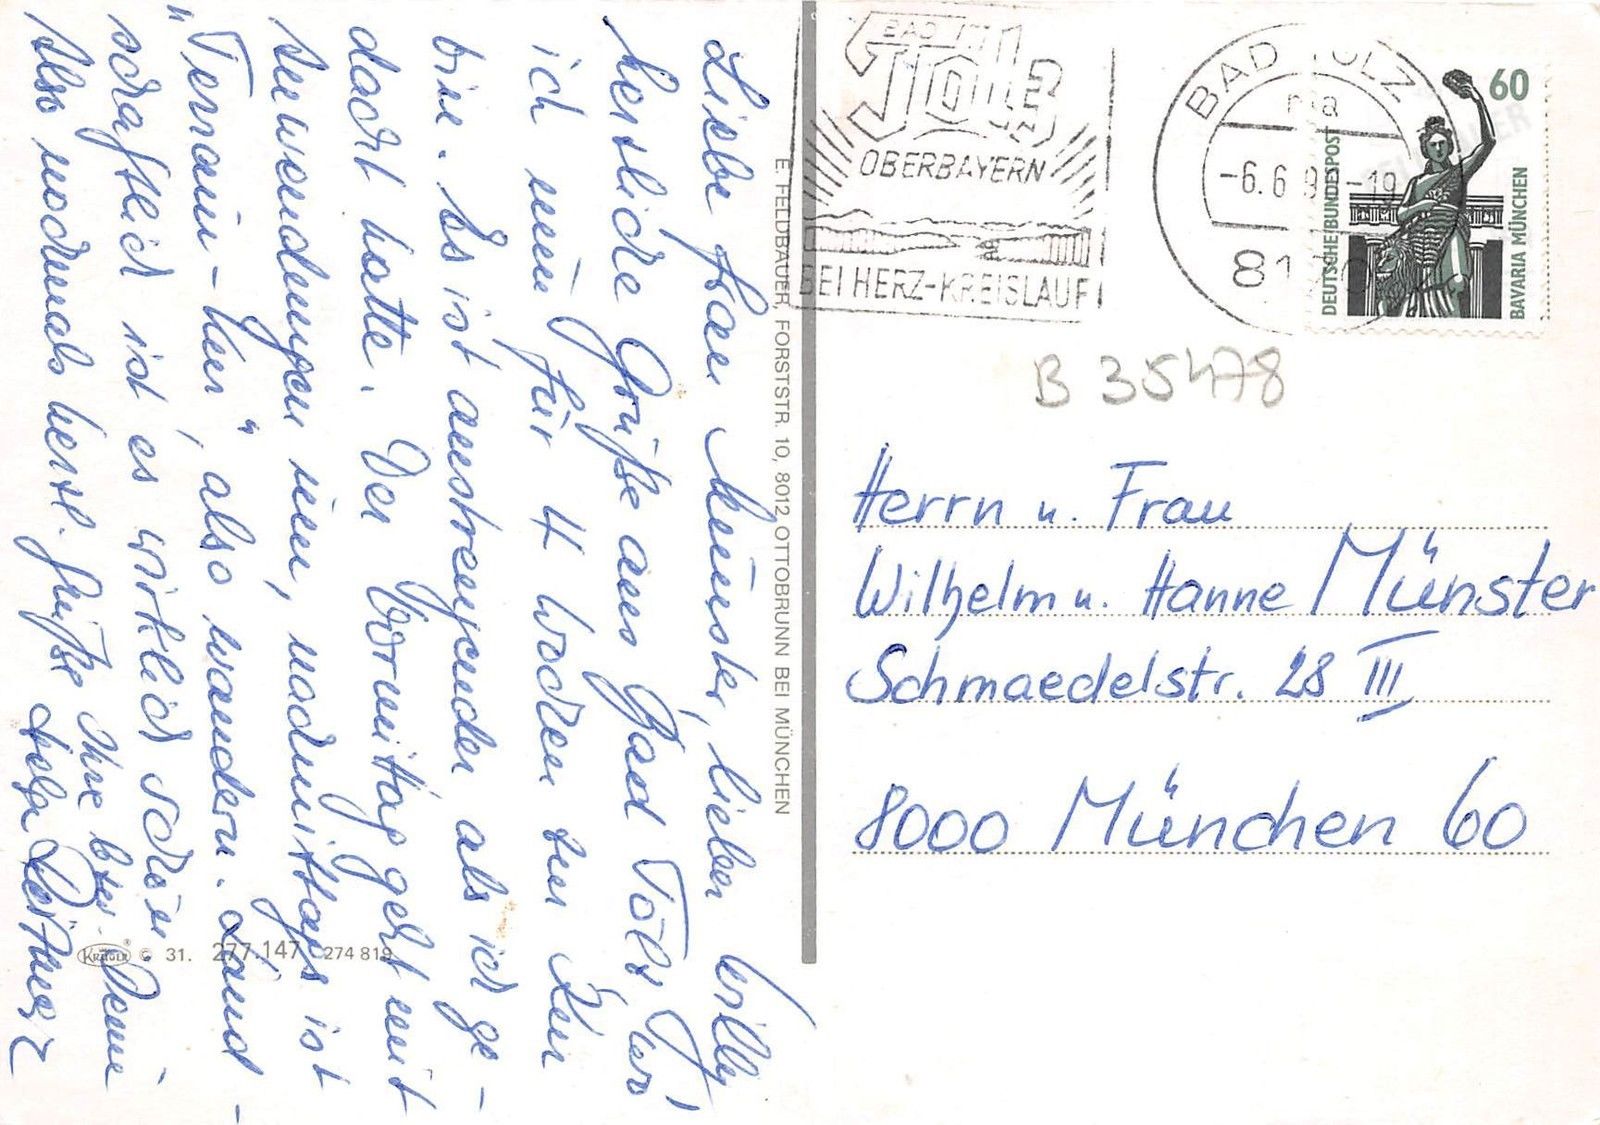 Liebe Frau Münster, lieber Willy!
herzliche Grüße aus Bad Tölz, wo
ich nun für 4 Wochen zur Kur
bin. Es ist anstrengender als ich ge-
dacht hatte. Der Vormittag geht mit
Anwendungen hin, nachmittags ist
"Terrain-Kur", also wandern. Land-
schaftlich ist es wirklich schön
Also nochmals herzl. Grüße Ihre bzw. Deine
Helga
E. FELDBAUER, FORSTSTR. 10, 8012 OTTOBRUNN BEI MÜNCHEN
KRÜGER ® © 31. 277.147 274 819
BAD TÖLZ
OBERBAYERN
BEI HERZ-KREISLAUF
BAD TÖLZ
ma
-6.6.9 -19
81
60
DEUTSCHE BUNDESPOST
BAVARIA MÜNCHEN
B 35478
Herrn u. Frau
Wilhelm u. Hanne Münster
Schmaedelstr. 28 III
8000 München 60